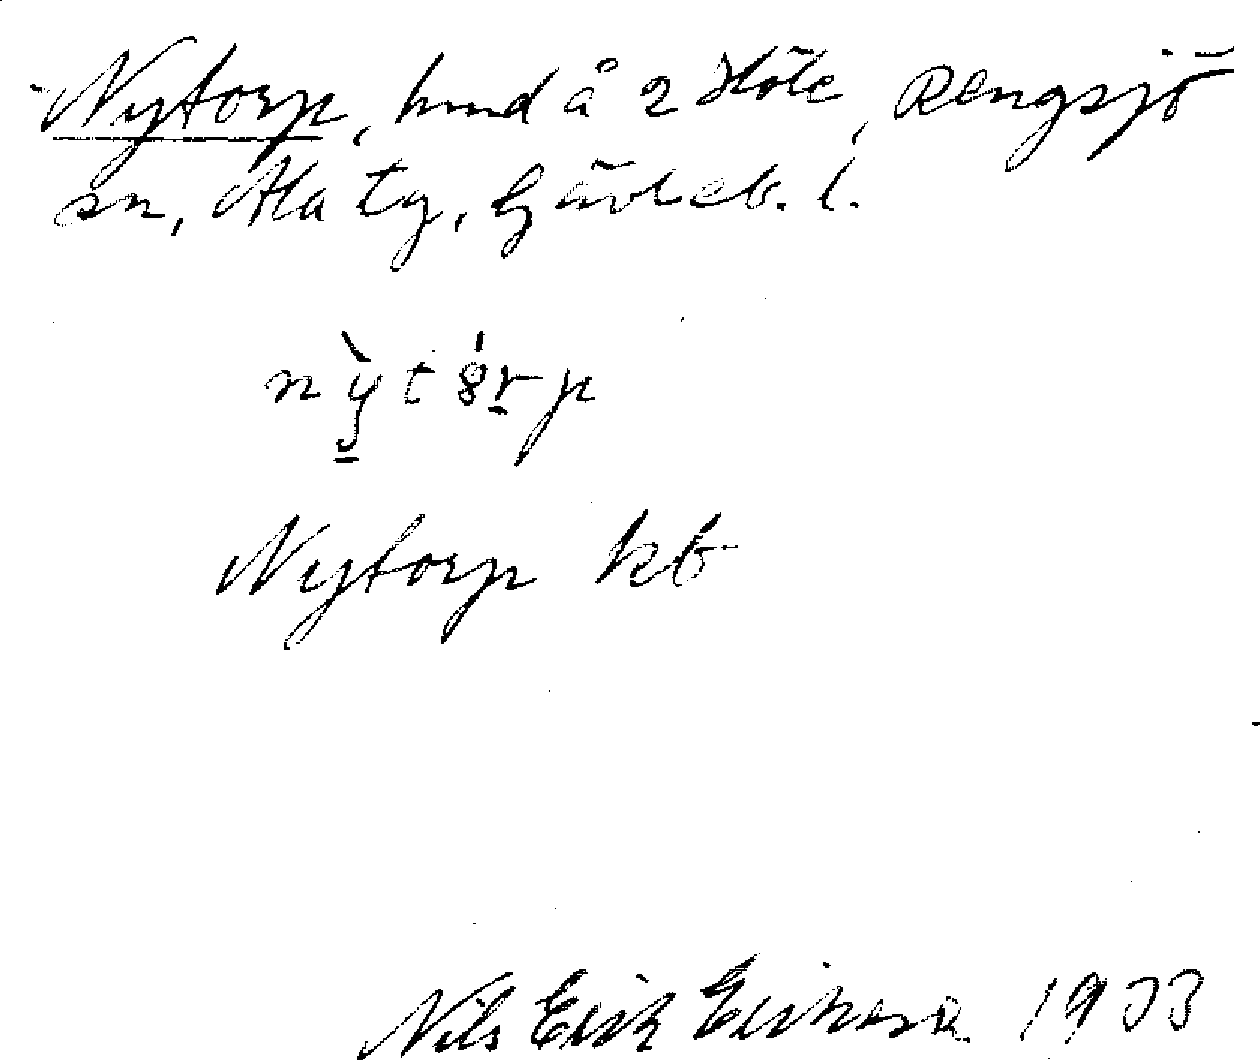 Nytorp, hmd å 2 Höle, Rengsjö
sn, Ala tg, Gävleb. l.
nỳtó̤rp
Nytorp kb
Nils Erik Erikson 1933